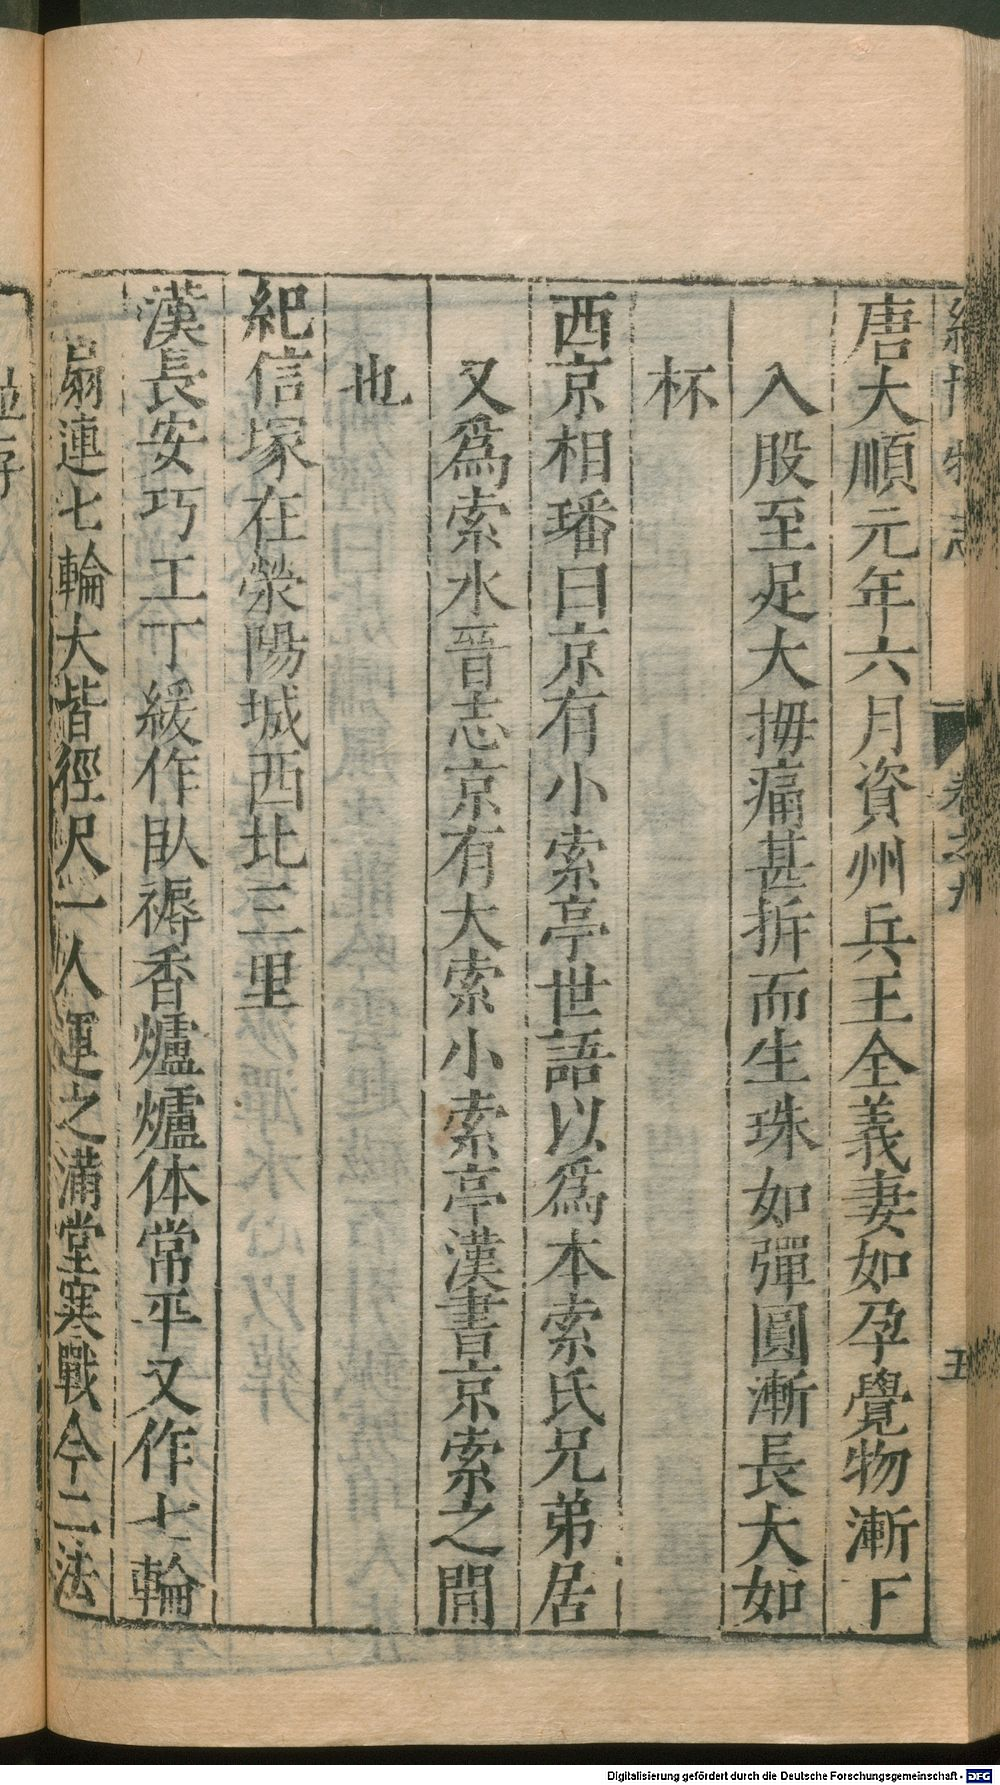 唐大順元年六月資州兵王全義妻如孕覺物漸下
入股至足大拇痛甚拆而生珠如彈圓漸長大如
杯
西京相璠曰京有小索亭世語以爲本索氏兄弟居
又爲索水晉志京有大索小索亭漢書京索之閒
也
紀信塚在滎陽城西北三里
漢長安巧工丁緩作臥褥香爐爐体常平又作七輪
扇連七輪大皆徑尺一人運之滿堂寒戰今二法
五
Digitalisierung gefördert durch die Deutsche Forschungsgemeinschaft - DFG